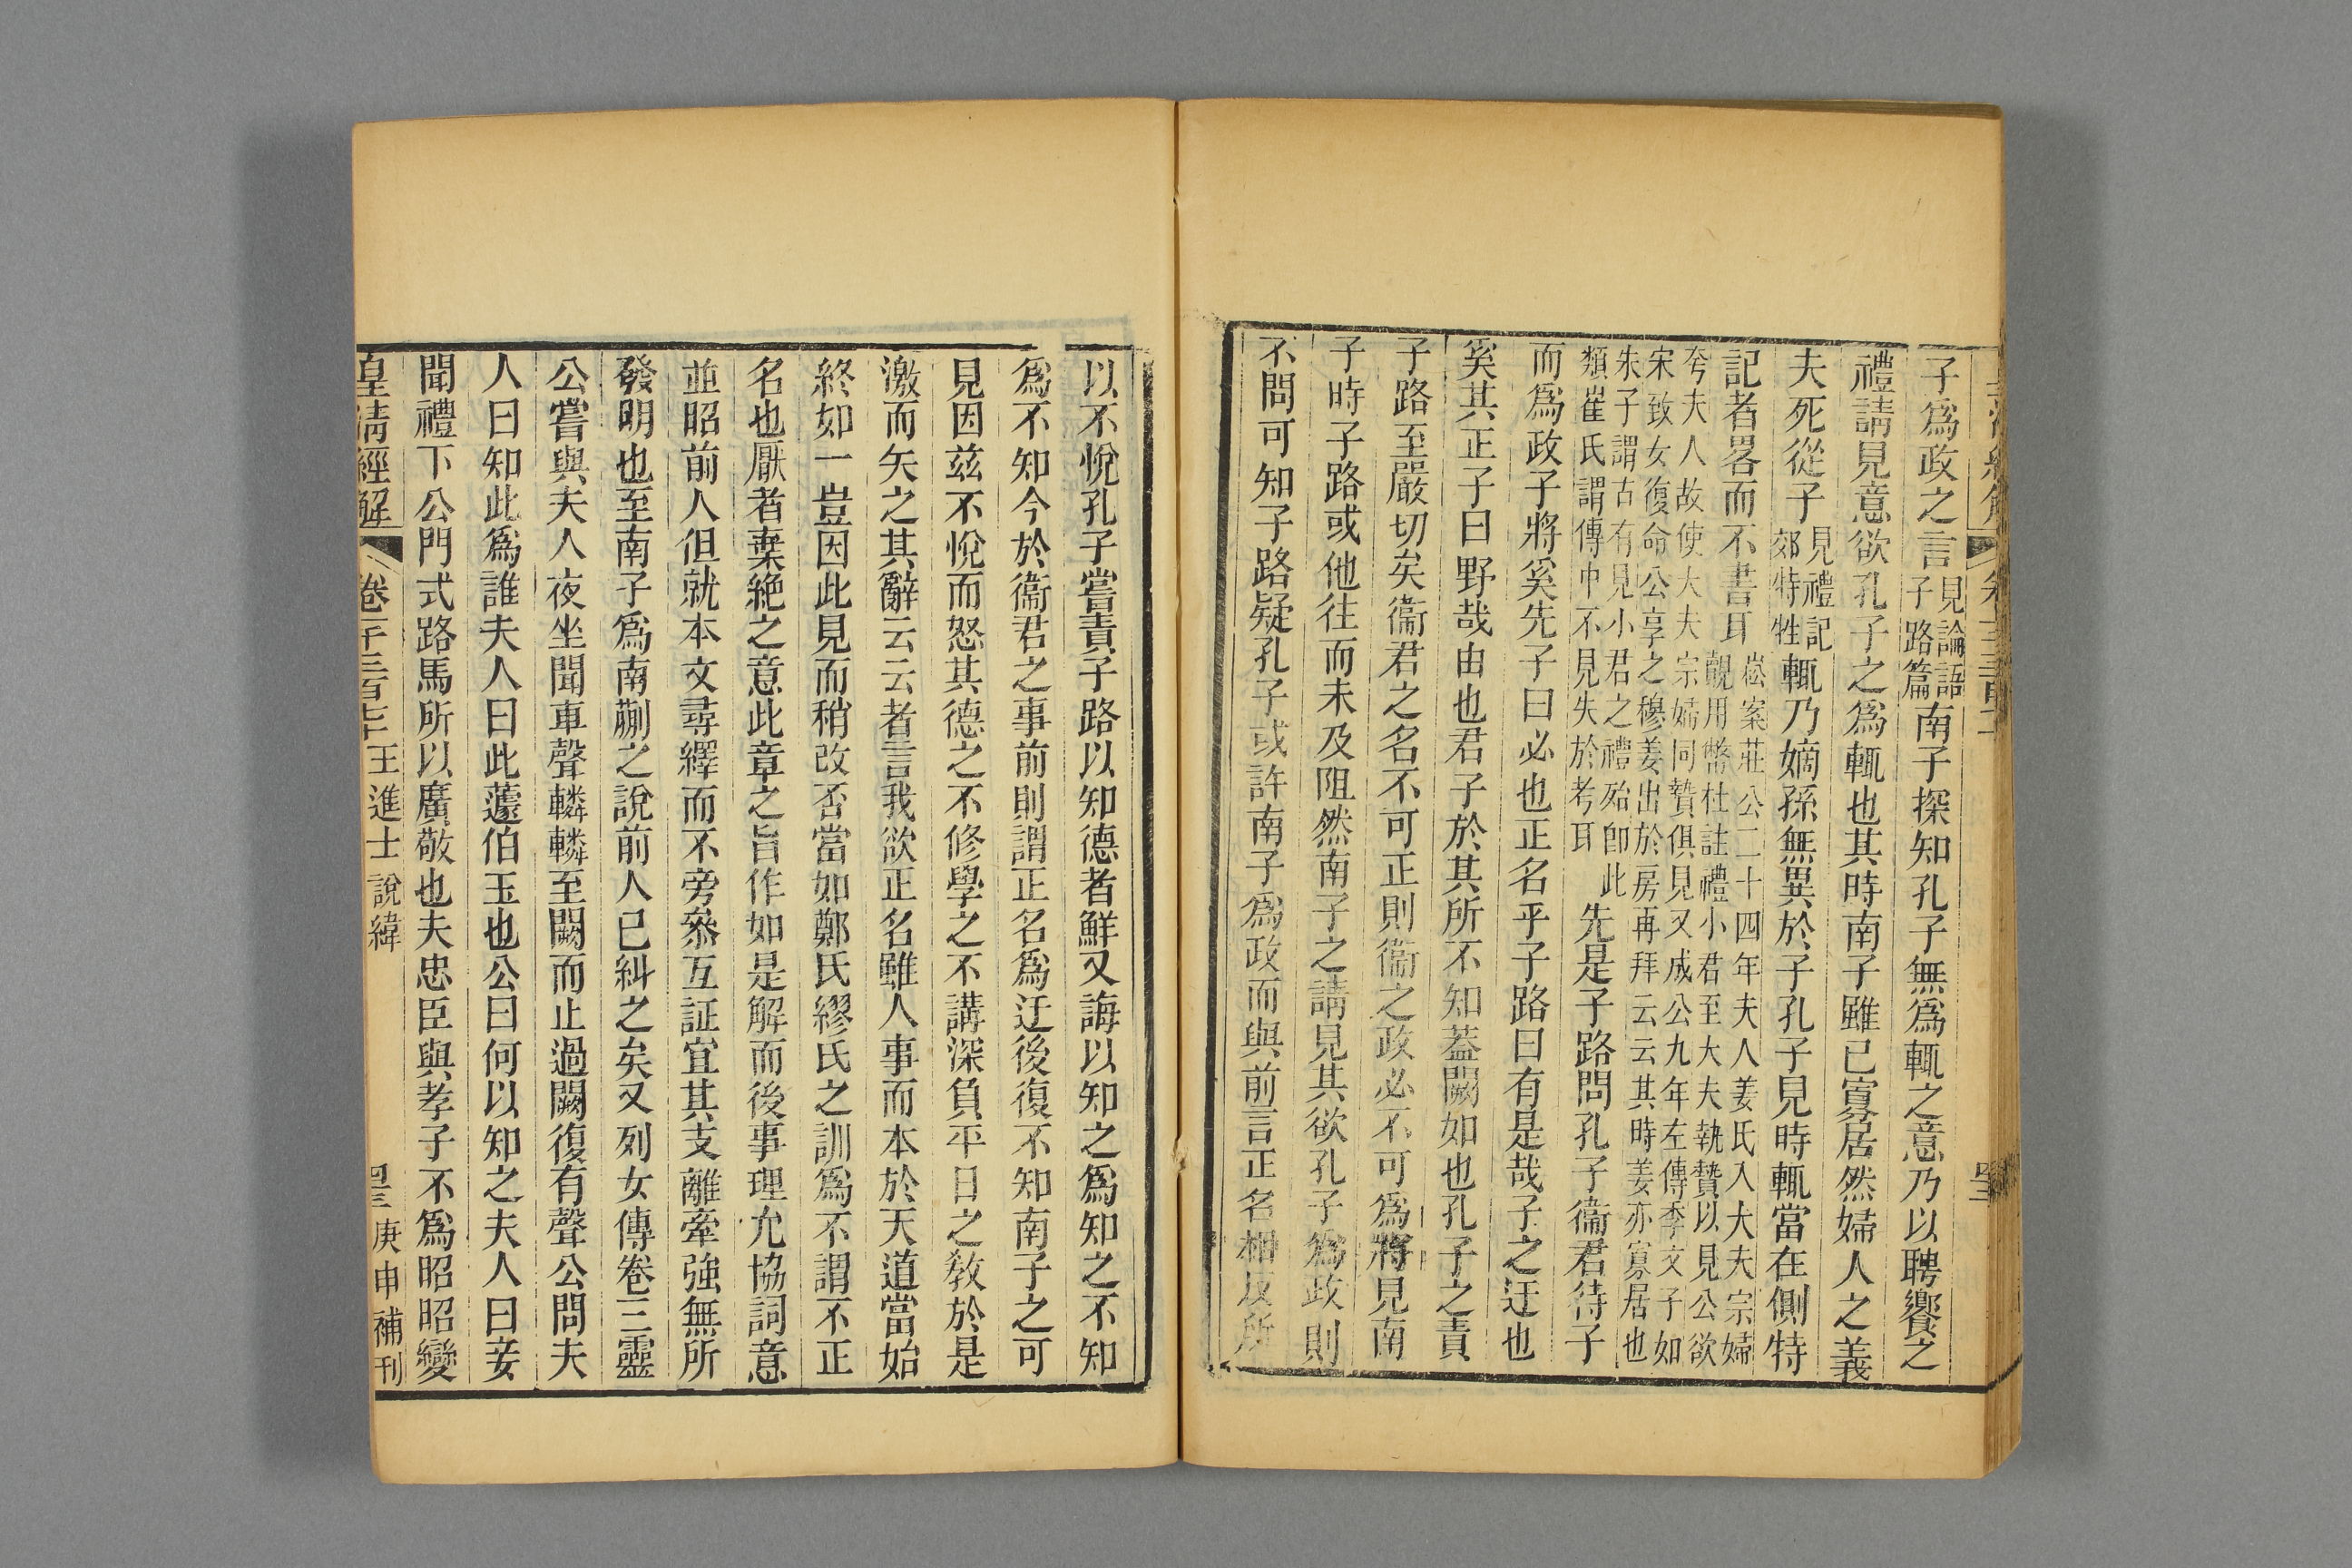 子爲政之言見論語子路篇南子探知孔子無爲輒之意乃以聘饗之
禮請見意欲孔子之爲輒也其時南子雖已寡居然婦人之義
夫死從子見禮記郊特牲輒乃嫡孫無異於子孔子見時輒當在側特
記者畧而不書耳崧案莊公二十四年夫人姜氏入大夫宗婦覿用幣杜註禮小君至大夫執贄以見公欲
夸夫人故使大夫宗婦同贄俱見又成公九年左傳季文子如
宋致女復命公享之穆姜出於房再拜云云其時姜亦寡居也
朱子謂古有見小君之禮殆卽此
類崔氏謂傳中不見失於考耳先是子路問孔子衞君待子
而爲政子將奚先子曰必也正名乎子路曰有是哉子之迂也
奚其正子曰野哉由也君子於其所不知蓋闕如也孔子之責
子路至嚴切矣衞君之名不可正則衞之政必不可爲將見南
子時子路或他往而未及阻然南子之請見其欲孔子爲政則
不問可知子路疑孔子或許南子爲政而與前言正名相反所
以不悅孔子嘗責子路以知德者鮮又誨以知之爲知之不知
爲不知今於衞君之事前則謂正名爲迂後復不知南子之可
見因茲不悅而怒其德之不修學之不講深負平日之敎於是
激而矢之其辭云云者言我欲正名雖人事而本於天道當始
終如一豈因此見而稍改否當如鄭氏繆氏之訓爲不謂不正
名也厭者棄絶之意此章之旨作如是解而後事理允協詞意
並昭前人但就本文尋繹而不旁叅互証宜其支離牽強無所
發明也至南子爲南蒯之說前人已糾之矣又列女傳卷三靈
公嘗與夫人夜坐聞車聲轔轔至闕而止過闕復有聲公問夫
人曰知此爲誰夫人曰此蘧伯玉也公曰何以知之夫人曰妾
聞禮下公門式路馬所以廣敬也夫忠臣與孝子不爲昭昭變
皇淸經解 卷一千三百七十 王進士說緯 四三 庚申補刊